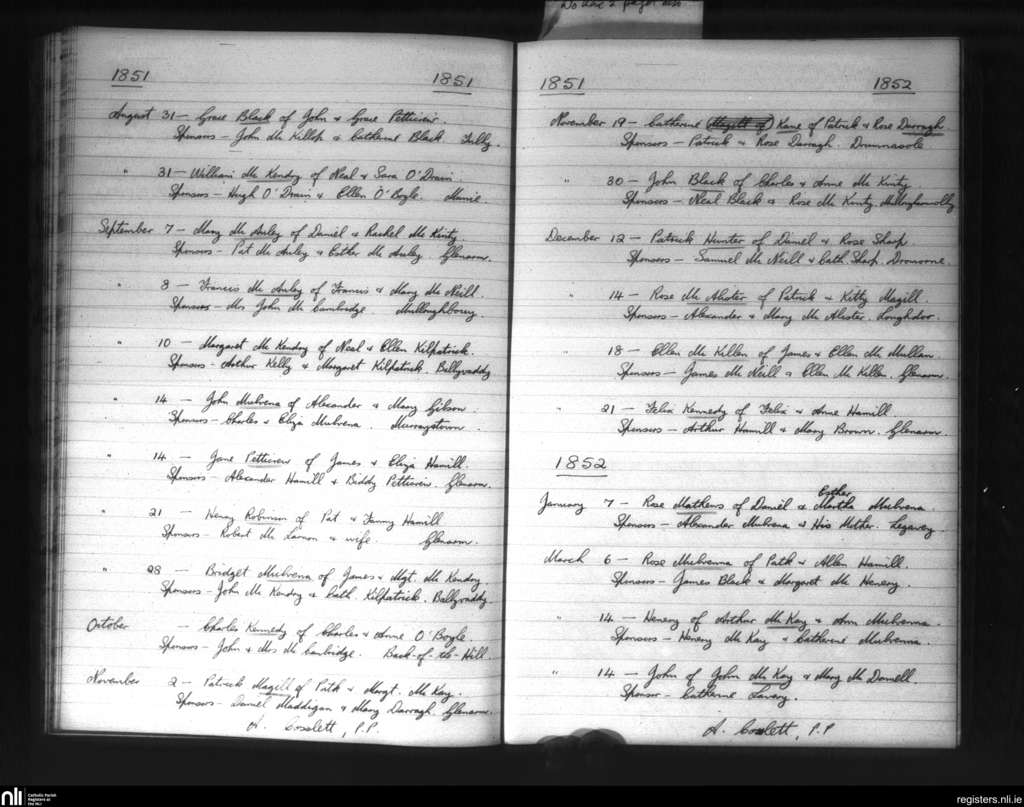 No here 2 pages also
1851 1851
August 31 - Grace Black of John & Grace Petticrew.
Sponsors - John Mc Killop & Catherine Black. Fully.
" 31 - William Mc Kendry of Neal & Sara O'Drain.
Sponsors - Hugh O'Drain & Ellen O'Boyle. Munie
September 7 - Mary Mc Auley of Daniel & Rachel Mc Kinty.
Sponsors - Pat Mc Auley & Esther Mc Auley. Glenarm.
" 8 - Francis Mc Auley of Francis & Mary Mc Neill.
Sponsors - Mrs John Mc Cambridge Mulloughboney.
" 10 - Margaret Mc Kendry of Neal & Ellen Kilpatrick.
Sponsors - Arthur Kelly & Margaret Kilpatrick. Ballyvaddy
" 14 - John Mulvena of Alexander & Mary Gibson.
Sponsors - Charles & Eliza Mulvena. Murraystown.
" 14 - Jane Petticrew of James & Eliza Hamill.
Sponsors - Alexander Hamill & Biddy Petticrew. Glenarm.
" 21 - Henry Robinson of Pat & Fanny Hamill
Sponsors - Robert Mc Larnon & wife. Glenarm.
" 28 - Bridget Mulvena of James & Mgt. Mc Kendry.
Sponsors - John Mc Kendry & Cath. Kilpatrick. Ballyvaddy.
October - Charles Kennedy of Charles & Anne O'Boyle.
Sponsors - John & Mrs Mc Cambridge. Back-of-the-Hill.
November 2 - Patrick Magill of Patk & Margt. Mc Kay.
Sponsors - Daniel Maddigan & Mary Darragh. Glenarm.
A. Cosslett, P.P.
1851 1852
November 19 - Catherine (Magill of) Kane of Patrick & Rose Darragh.
Sponsors - Patrick & Rose Darragh. Drumnasole
" 30 - John Black of Charles & Anne Mc Kinty.
Sponsors - Neal Black & Rose Mc Kinty. Mulloughconnolly
December 12 - Patrick Hunter of Daniel & Rose Sharp.
Sponsors - Samuel Mc Neill & Cath. Sharp. Drouorne.
" 14 - Rose Mc Alister of Patrick & Kitty Magill.
Sponsors - Alexander & Mary Mc Alister. Loughdoo.
" 18 - Ellen Mc Killen of James & Ellen Mc Mullan.
Sponsors - James Mc Neill & Ellen Mc Killen. Glenarm.
" 21 - Felix Kennedy of Felix & Anne Hamill.
Sponsors - Arthur Hamill & Mary Brown. Glenarm.
1852
Esther
January 7 - Rose Mathews of Daniel & Martha Mulvena.
Sponsors - Alexander Mulvena & His Mother. Legavey.
March 6 - Rose Mulvenna of Patk & Allen Hamill.
Sponsors - James Black & Margaret Mc Henery.
" 14 - Henery of Arthur Mc Kay & Ann Mulvenna.
Sponsors - Henery Mc Kay & Catherine Mulvenna.
" 14 - John of John Mc Kay & Mary Mc Donnell.
Sponsor - Catherine Lavery.
A. Cosslett, P.P
nli Catholic Parish Registers at the NLI
registers.nli.ie